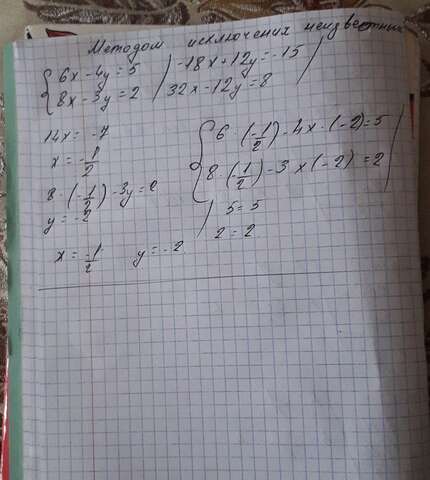 Методом исключения неизвестных
{ 6x - 4y = 5 | -18x + 12y = -15 |
8x - 3y = 2 | 32x - 12y = 8
14x = -7
x = -1/2
8 · (-1/2) - 3y = 2
y = -2
{ 6 · (-1/2) - 4x · (-2) = 5 |
8 · (-1/2) - 3 x (-2) = 2
5 = 5
2 = 2
x = -1/2 y = -2